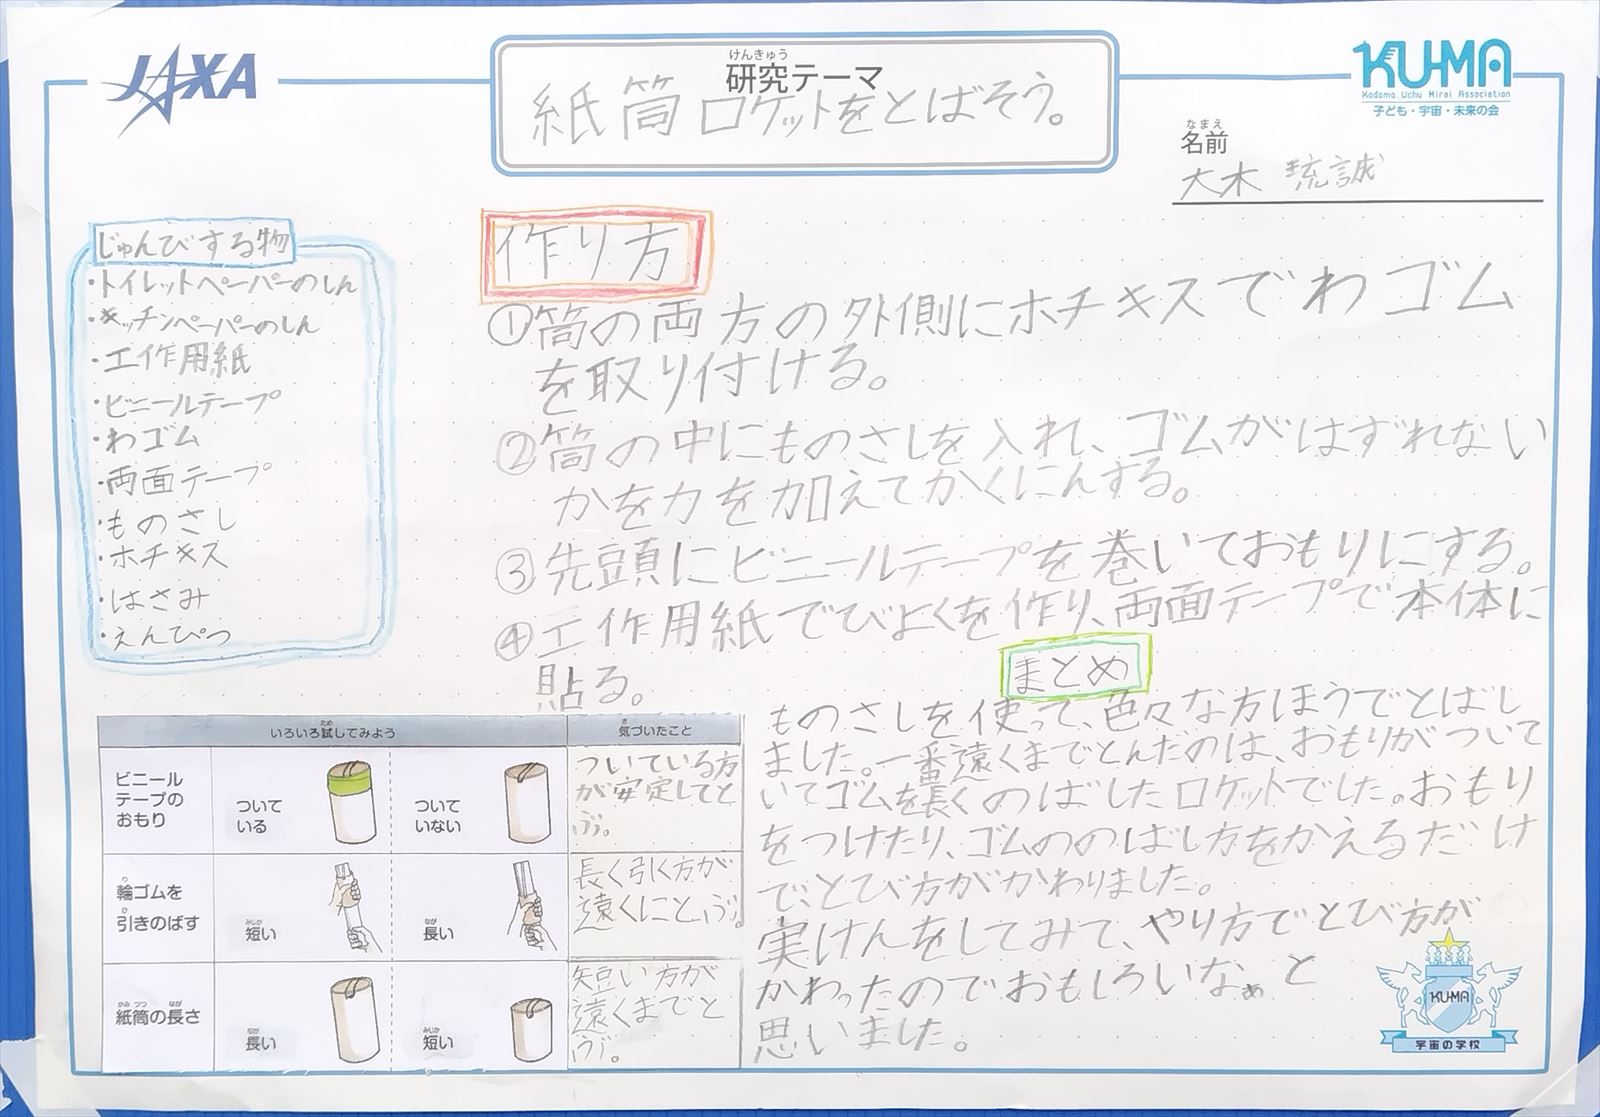 JAXA
けんきゅう
研究テーマ
紙筒ロケットをとばそう。
KU-MA
Kodomo Uchu Mirai Association
子ども・宇宙・未来の会
なまえ
名前
大木 琉誠
じゅんびする物
・トイレットペーパーのしん
・キッチンペーパーのしん
・工作用紙
・ビニールテープ
・わゴム
・両面テープ
・ものさし
・ホチキス
・はさみ
・えんぴつ
作り方
①筒の両方の外側にホチキスでわゴム
を取り付ける。
②筒の中にものさしを入れ、ゴムがはずれない
かを力を加えてかくにんする。
③先頭にビニールテープを巻いておもりにする。
④工作用紙でびよくを作り、両面テープで本体に
貼る。
いろいろ試してみよう
ため
気づいたこと
き
ビニール
テープの
おもり
ついて
いる
ついて
いない
ついている方
が安定してと
ぶ。
わ
輪ゴムを
ひ
引きのばす
みじか
短い
なが
長い
長く引く方が
遠くにとぶ。
かみ つつ なが
紙筒の長さ
なが
長い
みじか
短い
短い方が
遠くまでと
ぶ。
まとめ
ものさしを使って、色々な方ほうでとばし
ました。一番遠くまでとんだのは、おもりがついて
いてゴムを長くのばしたロケットでした。おもり
をつけたり、ゴムののばし方をかえるだけ
で、とび方がかわりました。
実けんをしてみて、やり方でとび方が
かわったのでおもしろいなぁと
思いました。
KU-MA
宇宙の学校